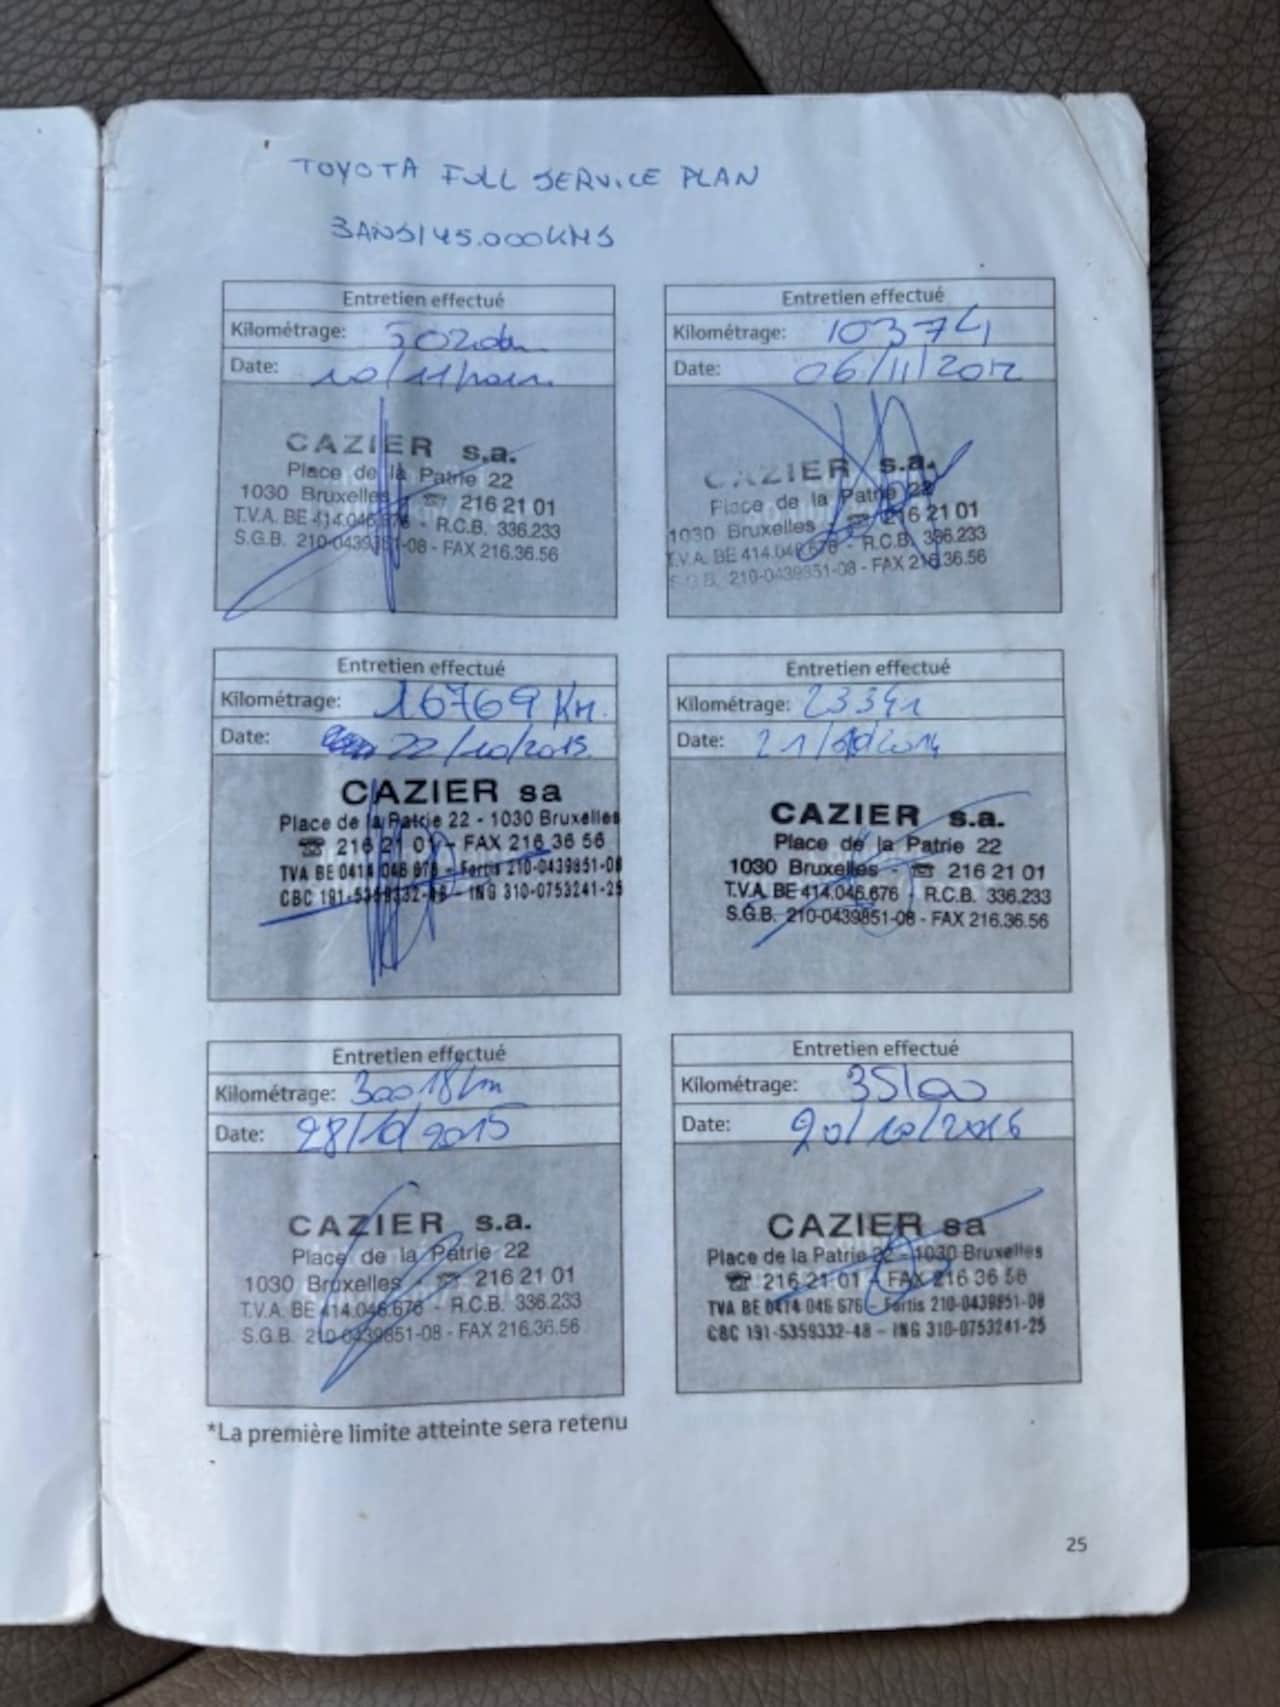 TOYOTA FULL SERVICE PLAN
3ANS/45.000KMS
Entretien effectué
Kilométrage:
Date: 10/11/
CAZIER s.a.
Place de la Patrie 22
1030 Bruxelles - ☎ 216 21 01
T.V.A. BE 414.046.676 - R.C.B. 336.233
S.G.B. 210-0439851-08 - FAX 216.36.56
Entretien effectué
Kilométrage: 10374
Date: 06/11/2012
CAZIER s.a.
Place de la Patrie 22
1030 Bruxelles - ☎ 216 21 01
T.V.A. BE 414.046.676 - R.C.B. 336.233
S.G.B. 210-0439851-08 - FAX 216.36.56
Entretien effectué
Kilométrage: 16769 Km.
Date: 22/10/2013
CAZIER sa
Place de la Patrie 22 - 1030 Bruxelles
☎ 216 21 01 - FAX 216 36 56
TVA BE 0414 046 676 - Fortis 210-0439851-08
CBC 191-5359332-48 - ING 310-0753241-25
Entretien effectué
Kilométrage: 23341
Date: 21/10/2014
CAZIER s.a.
Place de la Patrie 22
1030 Bruxelles - ☎ 216 21 01
T.V.A. BE 414.046.676 - R.C.B. 336.233
S.G.B. 210-0439851-08 - FAX 216.36.56
Entretien effectué
Kilométrage: 30018 km
Date: 28/10/2015
CAZIER s.a.
Place de la Patrie 22
1030 Bruxelles - ☎ 216 21 01
T.V.A. BE 414.046.676 - R.C.B. 336.233
S.G.B. 210-0439851-08 - FAX 216.36.56
Entretien effectué
Kilométrage: 35100
Date: 20/10/2016
CAZIER sa
Place de la Patrie 22 - 1030 Bruxelles
☎ 216 21 01 - FAX 216 36 56
TVA BE 0414 046 676 - Fortis 210-0439851-08
CBC 191-5359332-48 - ING 310-0753241-25
*La première limite atteinte sera retenu
25